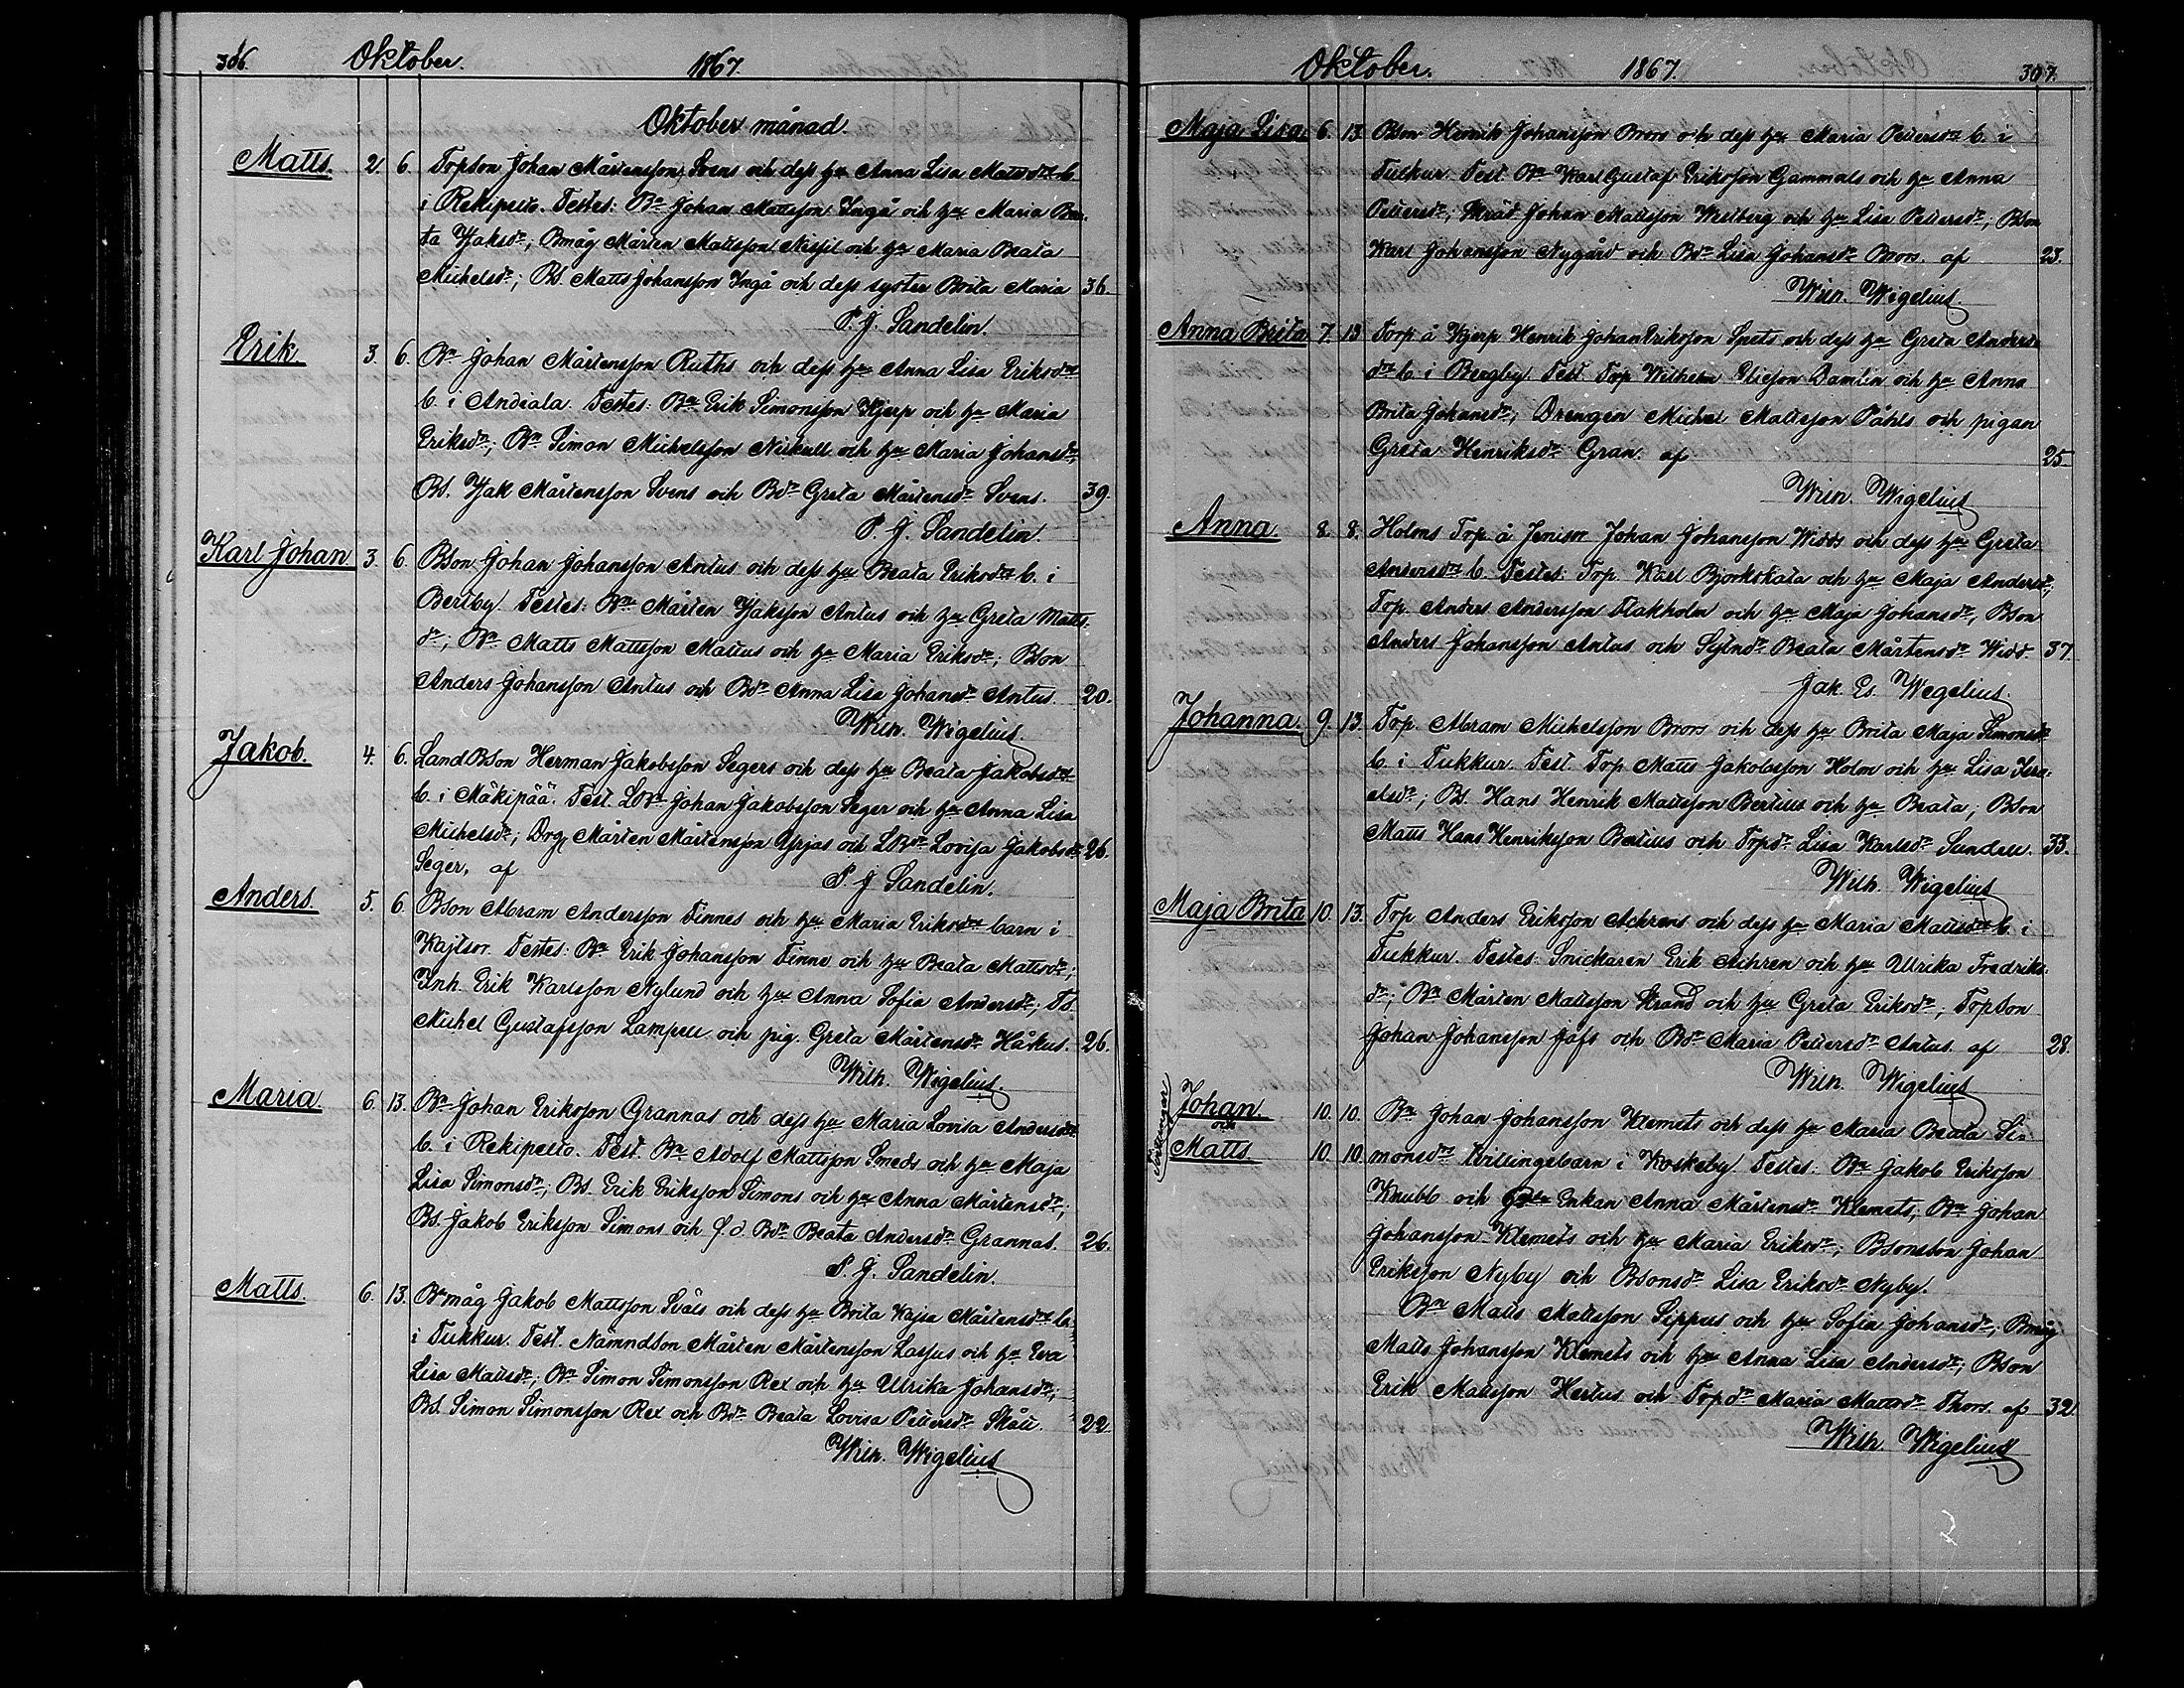 306. Oktober. 1867.
Oktober månad.
Matts. 2. 6. Torpson Johan Mårtensson Svens och dess hu Anna Lisa Mattsdtr b.
i Rekipelto. Testes: Bn Johan Mattsson Ingå och hu Maria Bea-
ta Isaksdr; Bmåg Mårten Mattsson Nissil och hu Maria Beata
Michelsdr; Bs. Matts Johansson Ingå och dess syster Brita Maria 36.
P. J. Sandelin.
Erik. 3. 6. Bn Johan Mårtensson Ruths och dess hu Anna Lisa Eriksdtr
b. i Andiala. Testes: Bn Erik Simonsson Kjerp och hu Maria
Eriksdr; Bn Simon Michelsson Niskull och hu Maria Johansdr;
Bs. Isak Mårtensson Svens och Bdr Greta Mårtensdr Svens. 39.
P. J. Sandelin.
Karl Johan 3. 6. Bson Johan Johansson Antus och dess hu Beata Eriksdtr b. i
Bertby. Testes: Bn Mårten Isaksson Antus och hu Greta Matts-
dr; Bn Matts Mattsson Mattus och hu Maria Eriksdr; Bson
Anders Johansson Antus och Bdr Anna Lisa Johansdr Antus. 20.
Wilh. Wegelius.
Jakob. 4. 6. LandBson Herman Jakobsson Segers och dess hu Beata Jakobsdtr
b. i Mäkipää. Test. LBn Johan Jakobsson Seger och hu Anna Lisa
Michelsdr; Drg Mårten Mårtensson Yrjas och LBdr Lovisa Jakobsdr 26.
Seger, af P. J. Sandelin.
Anders. 5. 6. Bson Abram Andersson Finnes och hu Maria Eriksdtr barn i
Kajtsor. Testes: Bn Erik Johansson Finne och hu Beata Mattsdr;
Inh. Erik Karlsson Nylund och hu Anna Sofia Andersdr; Ts.
Michel Gustafsson Lampell och pig. Greta Mårtensdr Håkus. 26.
Wilh. Wegelius.
Maria. 6. 13. Bn Johan Eriksson Grannas och dess hu Maria Lovisa Andersdtr
b. i Rekipelto. Test. Bn Adolf Mattsson Smeds och hu Maja
Lisa Simonsdr; Bs. Erik Eriksson Simons och hu Anna Mårtensdr;
Bs. Jakob Eriksson Simons och f.d. Bdr Beata Andersdr Grannas. 26.
P. J. Sandelin.
Matts. 6. 13. Bmåg Jakob Mattsson Svals och dess hu Brita Kajsa Mårtensdtr b.
i Tukkur. Test. Nämndson Mårten Mårtensson Lassus och hu Eva
Lisa Mattsdr; Bn Simon Simonsson Rex och hu Ulrika Johansdr;
Bs. Simon Simonsson Rex och Bdr Beata Lovisa Pettersdr Skått. 22.
Wilh. Wegelius
Oktober. 1867. 307.
Maja Lisa 6. 13. Bson Henrik Johansson Brors och dess hu Maria Pettersdtr b. i
Tukkur. Test. Bn Karl Gustaf Eriksson Gammals och hu Anna
Pettersdr; Johan Mattsson Westberg och hu Lisa Pettersdr; Bson
Karl Johansson Nygård och Bdr Lisa Johansdr Brors. af 23.
Wilh. Wegelius.
Anna Brita 7. 13. Torp å Kjerp Henrik Johan Eriksson Spets och dess hu Greta Anders-
dtr b. i Bergby. Test. Torp Wilhelm Eliesson Damlin och hu Anna
Brita Johansdr; Drengen Michel Mattsson Påhls och pigan
Greta Henriksdr Gran. af 25.
Wilh. Wegelius
Anna 8. 8. Holms Torp. å Jenisor Johan Johansson Widds och dess hu Greta
Andersdtr b. Testes: Torp. Karl Björkskata och hu Maja Andersdr;
Torp. Anders Andersson Flakholm och hu Maja Johansdr; Bson
Anders Johansson Antus och Sytndr Beata Mårtensdr Widd. 37.
Jak. Es. Wegelius.
Johanna. 9. 13. Torp. Abram Michelsson Brors och dess hu Brita Maja Simonsdr
b. i Tukkur. Test. Torp Matts Jakobsson Holm och hu Lisa Isra-
elsdr; Bs. Hans Henrik Mattsson Bertius och hu Beata; Bson
Matts Hans Henriksson Bertius och Torpdr Lisa Karlsdr Sundell. 33.
Wilh. Wegelius
Maja Brita 10. 13. Torp Anders Eriksson Achrens och dess hu Maria Mattsdtr b. i
Tukkur. Testes Snickaren Erik Achren och hu Ulrika Fredriks-
dr; Bn Mårten Mattsson Strand och hu Greta Eriksdr; Torpson
Johan Johansson Jåfs och Bdr Maria Pettersdr Antus. af 28.
Wilh. Wegelius
Tvillingar
Johan. 10. 10. Bn Johan Johansson Klemets och dess hu Maria Beata Si-
och
Matts 10. 10. monsdr tvillingebarn i Koskeby. Testes: Bn Jakob Eriksson
Knubb och Enkan Anna Mårtensdr Klemets; Bn Johan
Johansson Klemets och hu Maria Eriksdr; Bsonsson Johan
Eriksson Nyby och Bsonsdr Lisa Eriksdr Nyby.
Bn Matts Mattsson Sippus och hu Sofia Johansdr; Bmåg
Matts Johansson Klemets och hu Anna Lisa Andersdr; Bson
Erik Mattsson Hertus och Torpdr Maria Mattsdr Thors. af 32.
Wilh. Wegelius